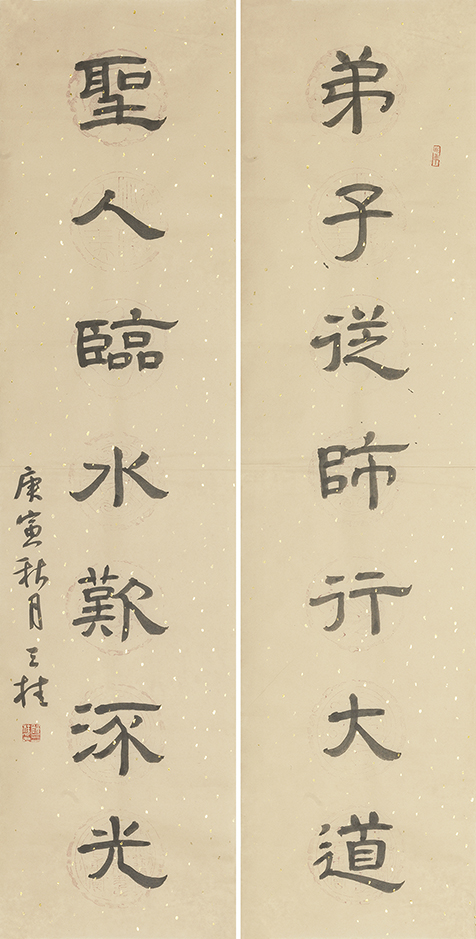 弟子從師行大道
聖人臨水歎流光
庚寅秋月桂